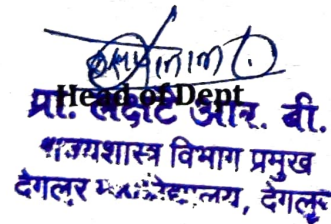 Head of Dept
प्रा. आर. बी.
राज्यशास्त्र विभाग प्रमुख
देगलूर महाविद्यालय, देगलूर